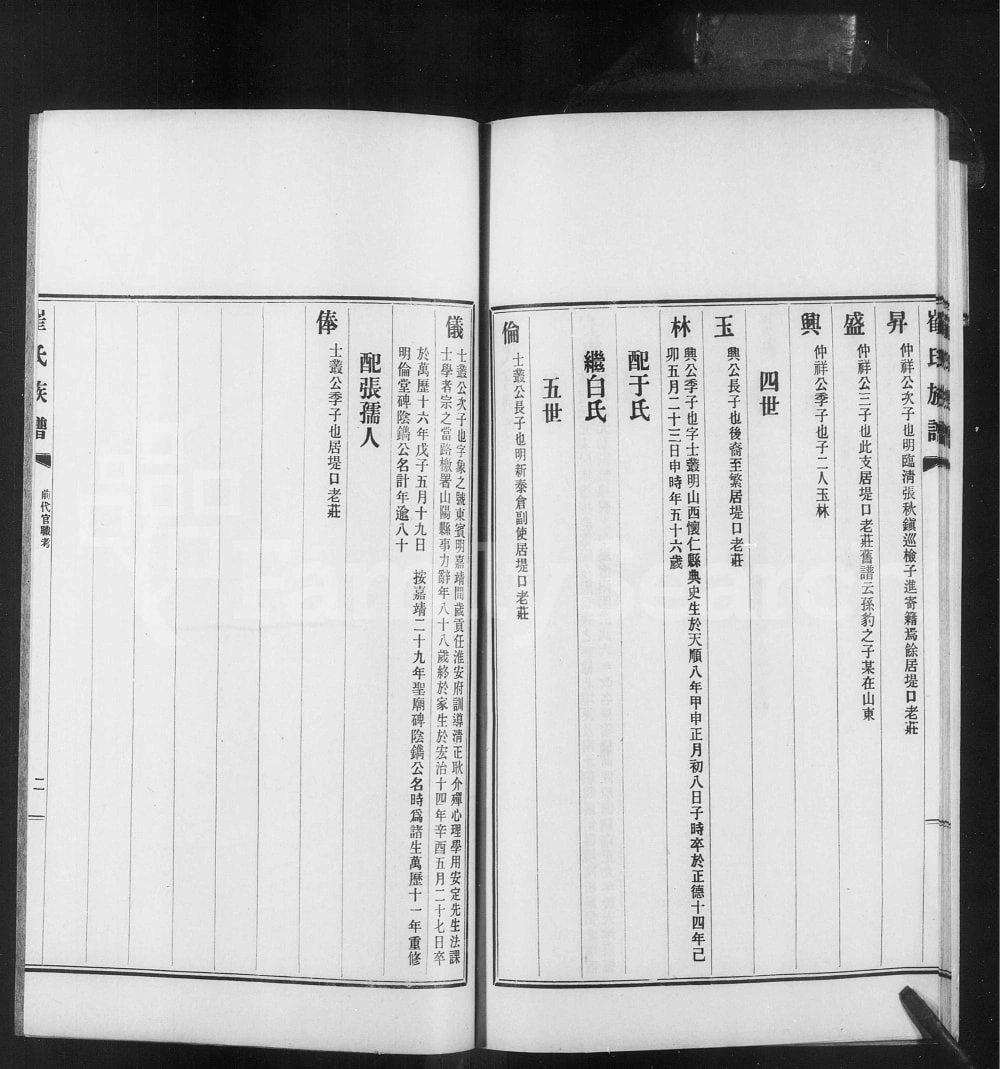 崔氏族譜
昇
仲祥公次子也明臨清張秋鎮巡檢子進寄籍焉餘居堤口老莊
盛
仲祥公三子也此支居堤口老莊舊譜云孫豹之子某在山東
興
仲祥公季子也子二人玉林
四世
玉
興公長子也後裔至繁居堤口老莊
林
興公季子也字士叢明山西懷仁縣典史生於天順八年甲申正月初八日子時卒於正德十四年己
卯五月二十三日申時年五十六歲
配于氏
繼白氏
五世
倫
士叢公長子也明新泰倉副使居堤口老莊
儀
士叢公次子也字象之號東賓明嘉靖間歲貢任淮安府訓導清正耿介殫心理學用安定先生法課
士學者宗之當路檄署山陽縣事力辭年八十八歲終於家生於宏治十四年辛酉五月二十七日卒
於萬歷十六年戊子五月十九日 按嘉靖二十九年聖廟碑陰鐫公名時爲諸生萬歷十一年重修
明倫堂碑陰鐫公名計年逾八十
配張孺人
俸
士叢公季子也居堤口老莊
崔氏族譜
前代官職考
二